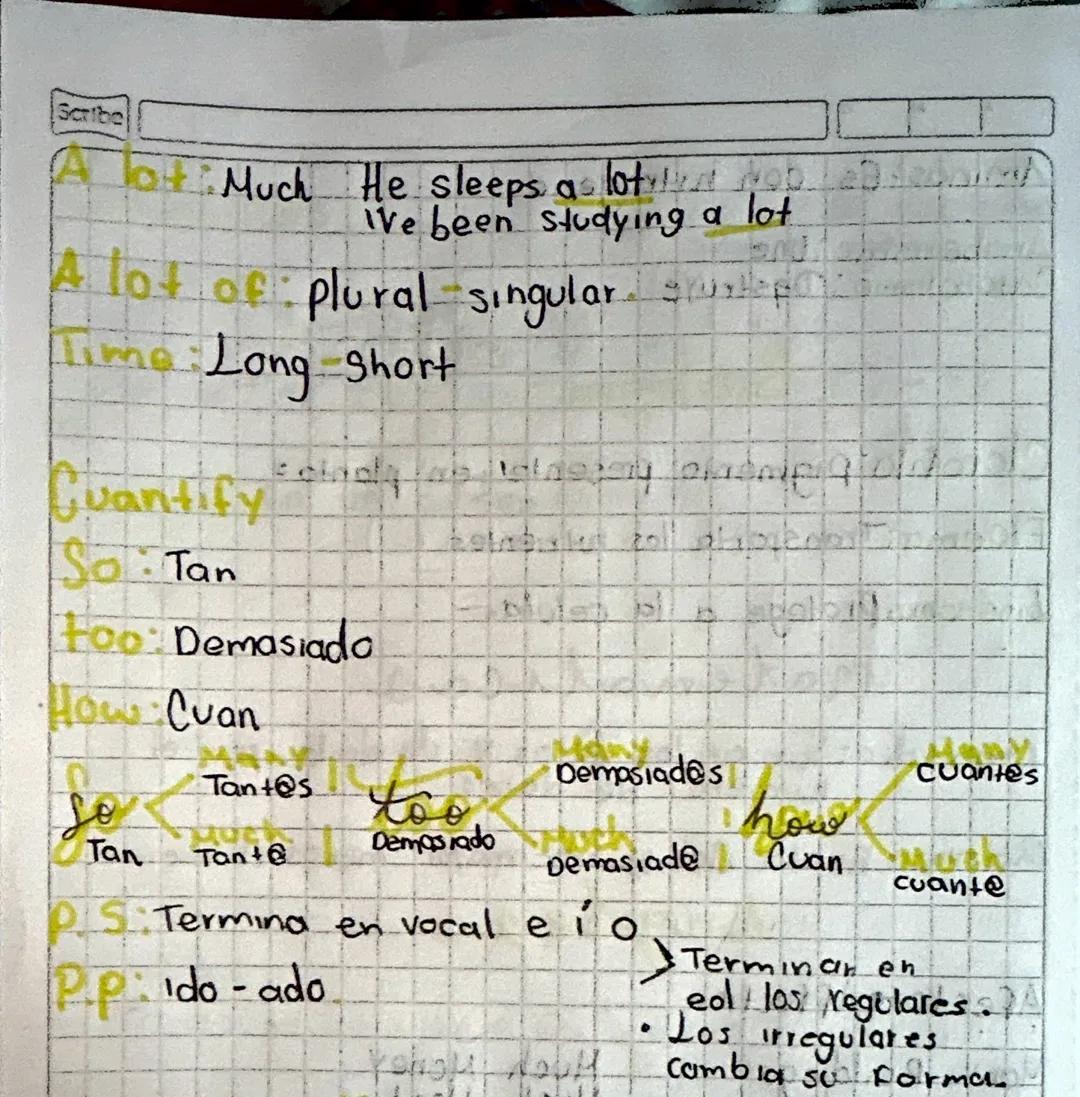 Scribe
A lot: Much He sleeps a lot
I've been studying a lot
A lot of: plural-singular.
Time: Long-Short
Cuantify
So: Tan
too: Demasiado
How: Cuan
Many Many Many
Tant@s Demasiad@s cuant@s
So too how
Tan Demasiado Cuan
Much Much Much
Tant@ Demasiad@ cuant@
P.S: Termina en vocal e í o
P.p: ido - ado.
> Terminan en
ed los regulares.
• Los irregulares
cambia su forma